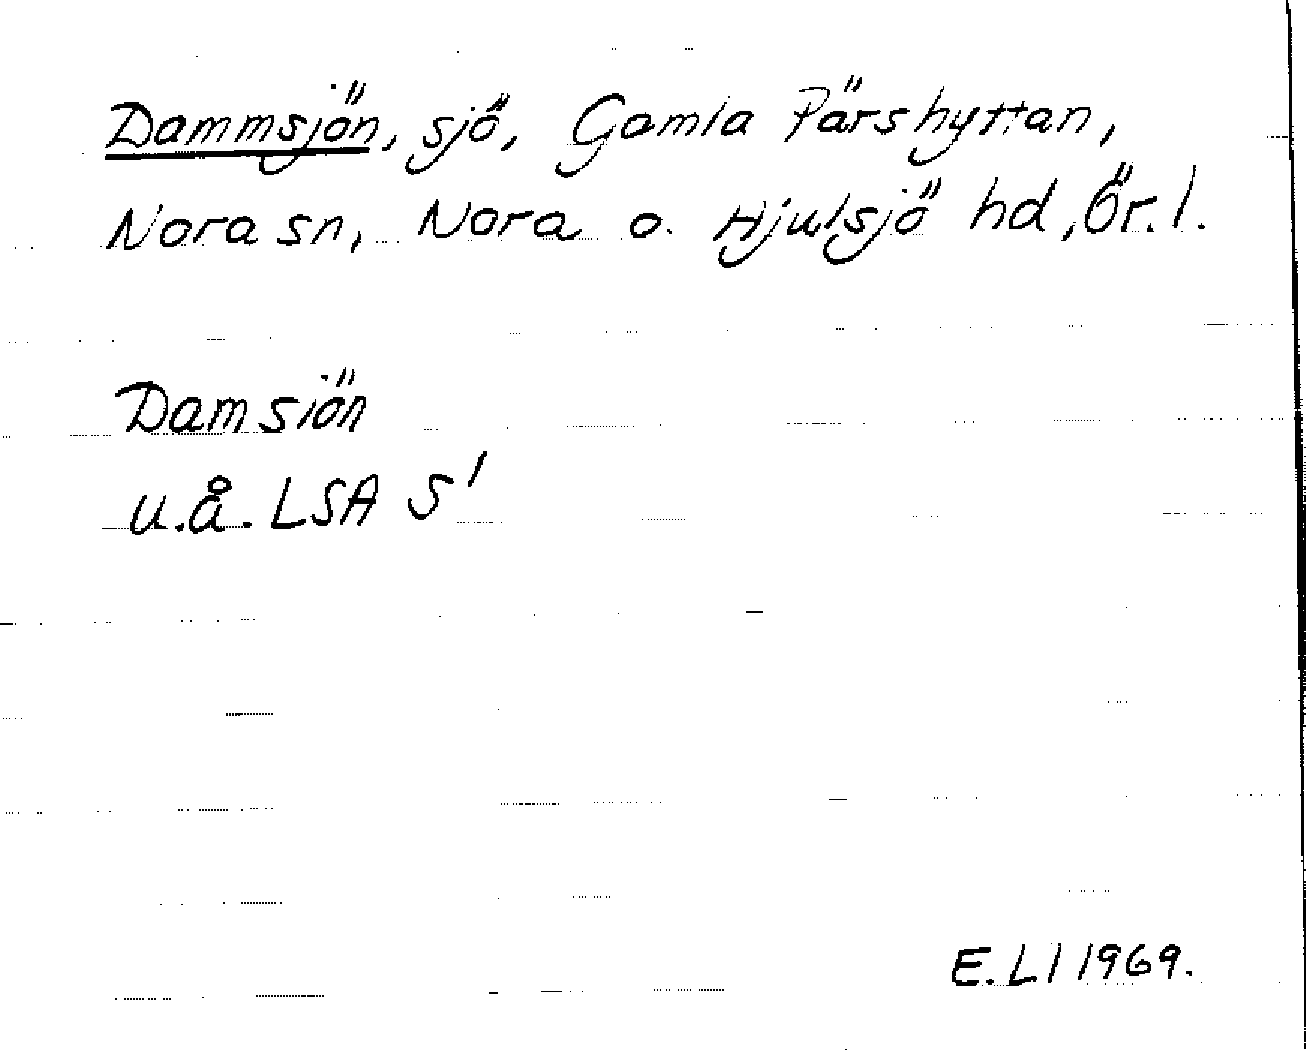 Dammsjön, sjö, Gamla Pärshyttan,
Nora sn, Nora o. Hjulsjö hd, Ör. l.
Damsiön
u.å. LSA S'
E. Ll 1969.